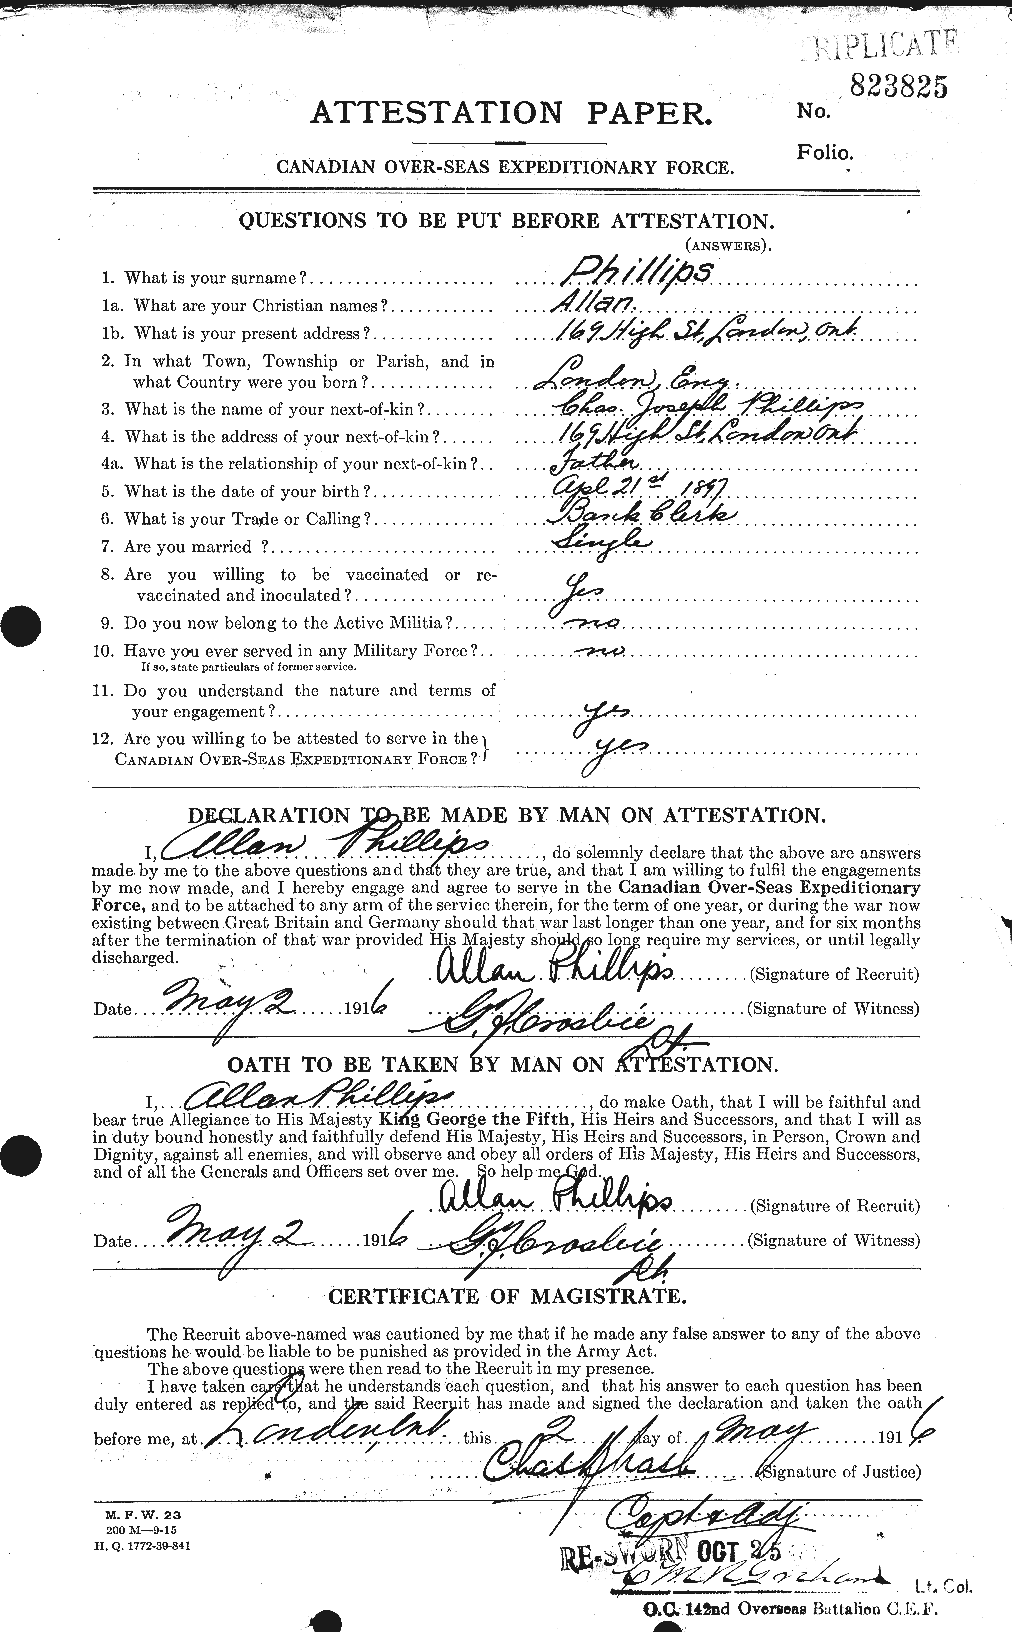 TRIPLICATE
823825
ATTESTATION PAPER.
No.
Folio.
CANADIAN OVER-SEAS EXPEDITIONARY FORCE.
QUESTIONS TO BE PUT BEFORE ATTESTATION.
(ANSWERS).
1. What is your surname? Phillips
1a. What are your Christian names? Allan.
1b. What is your present address? 169 High St, London, Ont
2. In what Town, Township or Parish, and in
what Country were you born? London, Eng.
3. What is the name of your next-of-kin? Chas. Joseph Phillips
4. What is the address of your next-of-kin? 169 High St, London Ont
4a. What is the relationship of your next-of-kin? Father
5. What is the date of your birth? Apl 21st 1897
6. What is your Trade or Calling? Bank Clerk
7. Are you married ? Single
8. Are you willing to be vaccinated or re-
vaccinated and inoculated? Yes
9. Do you now belong to the Active Militia? no
10. Have you ever served in any Military Force? no
If so, state particulars of former service.
11. Do you understand the nature and terms of
your engagement? yes
12. Are you willing to be attested to serve in the
CANADIAN OVER-SEAS EXPEDITIONARY FORCE? yes
DECLARATION TO BE MADE BY MAN ON ATTESTATION.
I, Allan Phillips, do solemnly declare that the above are answers
made by me to the above questions and that they are true, and that I am willing to fulfil the engagements
by me now made, and I hereby engage and agree to serve in the Canadian Over-Seas Expeditionary
Force, and to be attached to any arm of the service therein, for the term of one year, or during the war now
existing between Great Britain and Germany should that war last longer than one year, and for six months
after the termination of that war provided His Majesty should so long require my services, or until legally
discharged.
Allan Phillips (Signature of Recruit)
Date May 2 1916 G.F. Crosbie (Signature of Witness)
Lt.
OATH TO BE TAKEN BY MAN ON ATTESTATION.
I, Allan Phillips, do make Oath, that I will be faithful and
bear true Allegiance to His Majesty King George the Fifth, His Heirs and Successors, and that I will as
in duty bound honestly and faithfully defend His Majesty, His Heirs and Successors, in Person, Crown and
Dignity, against all enemies, and will observe and obey all orders of His Majesty, His Heirs and Successors,
and of all the Generals and Officers set over me. So help me God.
Allan Phillips (Signature of Recruit)
Date May 2 1916 G.F. Crosbie (Signature of Witness)
Lt.
CERTIFICATE OF MAGISTRATE.
The Recruit above-named was cautioned by me that if he made any false answer to any of the above
questions he would be liable to be punished as provided in the Army Act.
The above questions were then read to the Recruit in my presence.
I have taken care that he understands each question, and that his answer to each question has been
duly entered as replied to, and the said Recruit has made and signed the declaration and taken the oath
before me, at London, Ont. this 2 day of May 1916
(Signature of Justice)
M. F. W. 23
200 M—9-15
H. Q. 1772-39-841
Capt & Adj
RE-SWORN OCT 25
Lt. Col.
O.C. 142nd Overseas Battalion C.E.F.